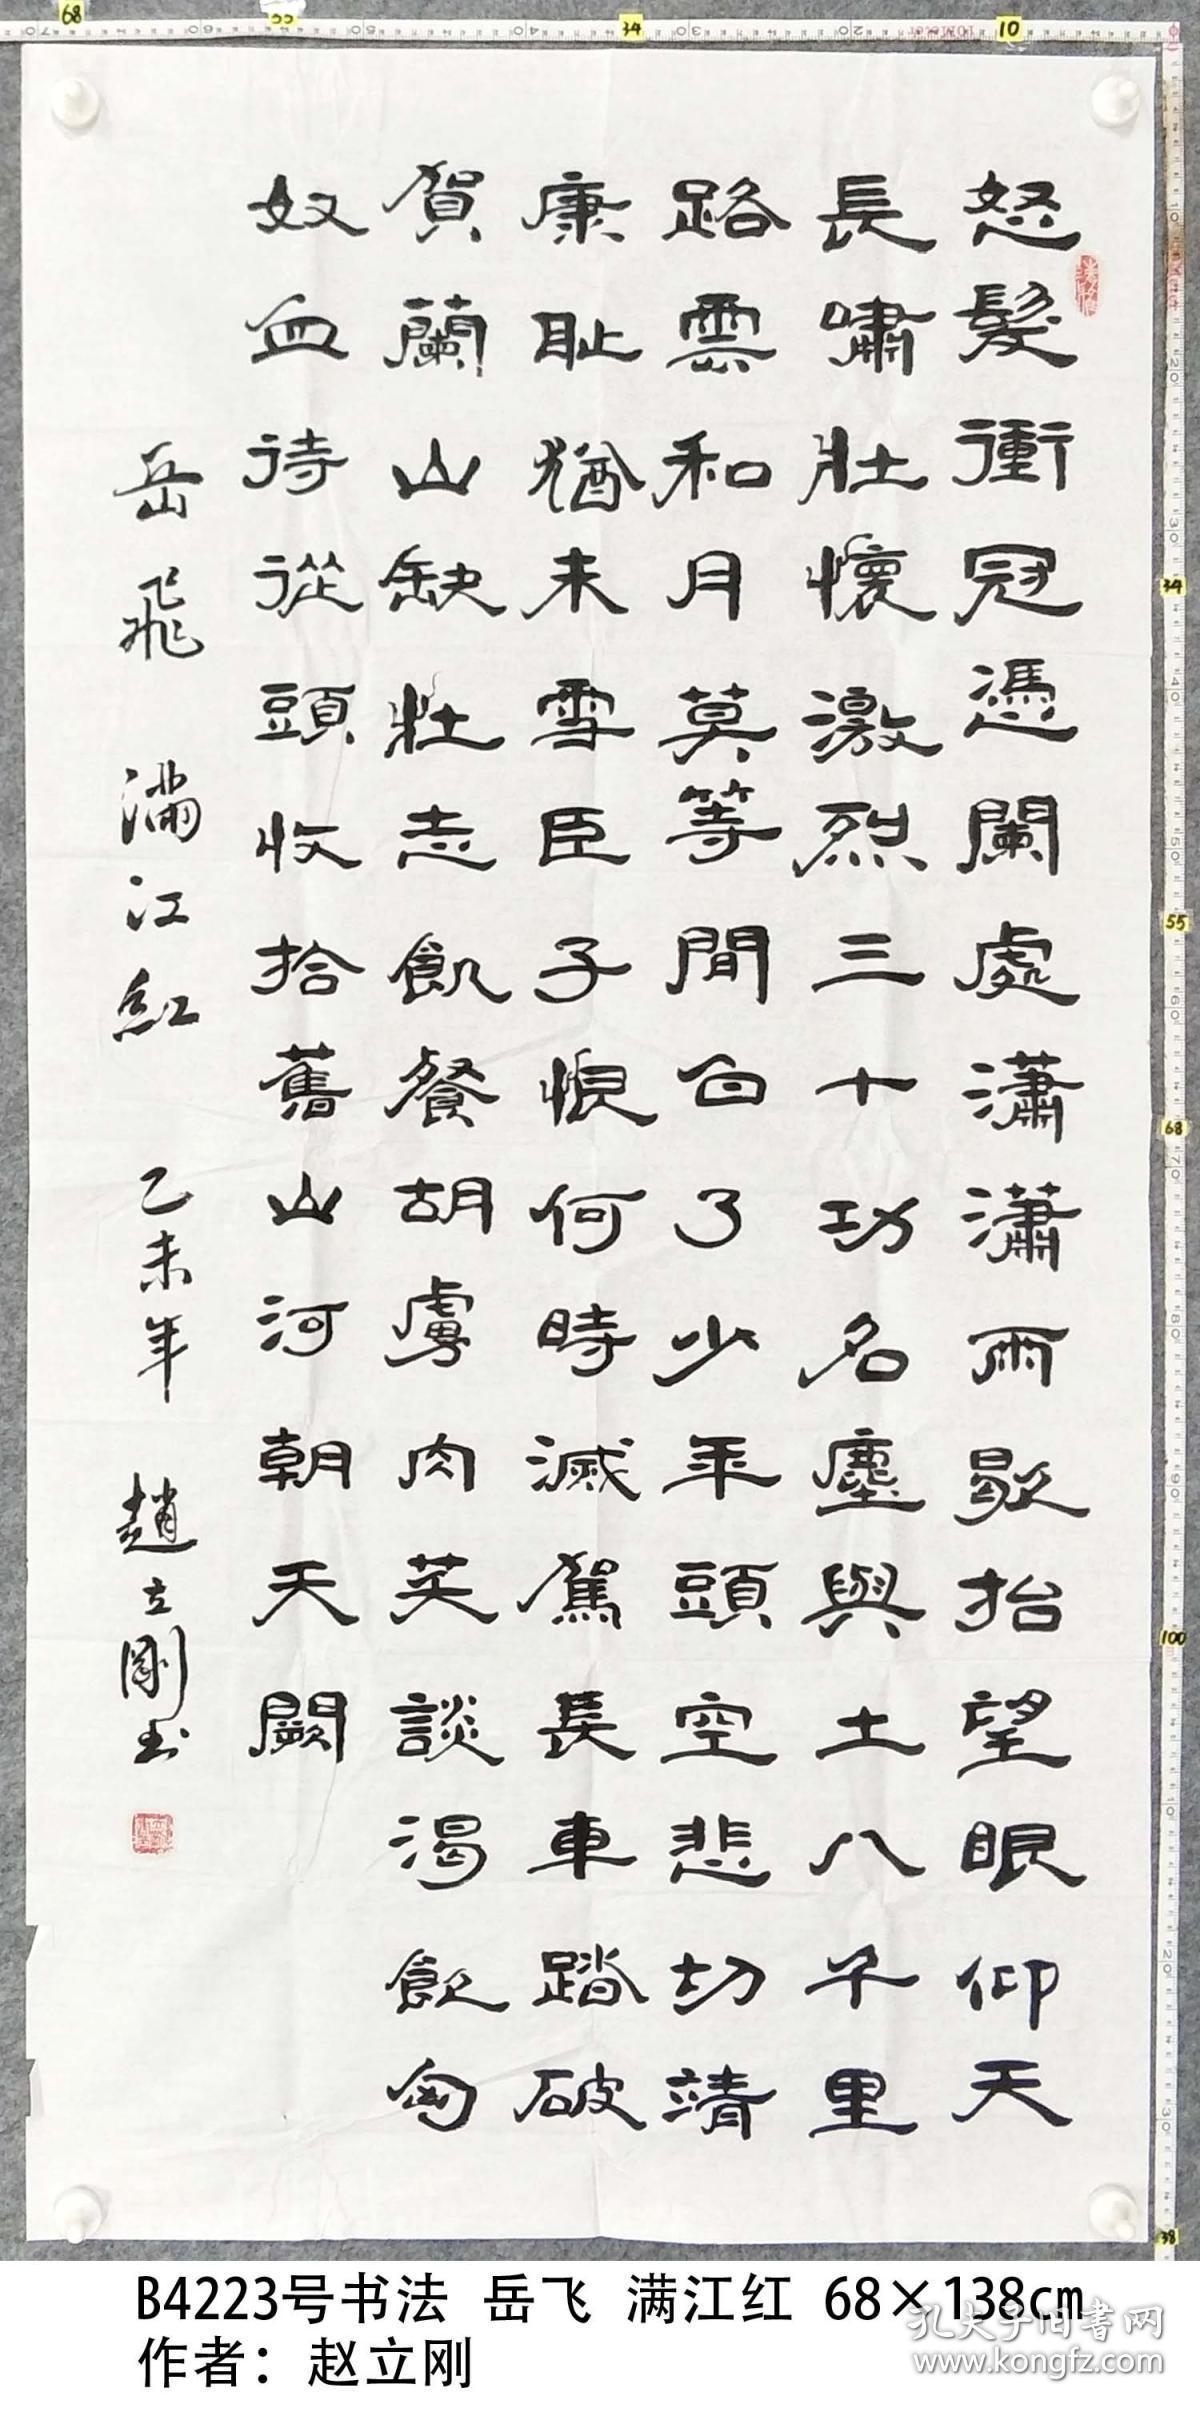 怒髮衝冠憑闌處瀟瀟雨歇抬望眼仰天
長嘯壯懷激烈三十功名塵與土八千里
路雲和月莫等閒白了少年頭空悲切靖
康耻猶未雪臣子恨何時滅駕長車踏破
賀蘭山缺壯志飢餐胡虜肉笑談渴飲匈
奴血待從頭收拾舊山河朝天闕
岳飛 滿江紅 乙未年 趙立剛书
B4223号书法 岳飞 满江红 68×138cm
作者：赵立刚
孔夫子旧书网
www.kongfz.com
68
55
34
10
34
55
68
100
38